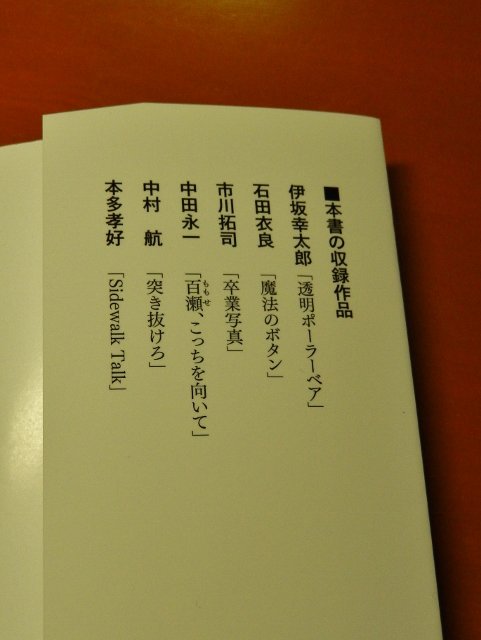 ■本書の収録作品
伊坂幸太郎「透明ポーラーベア」
石田衣良「魔法のボタン」
市川拓司「卒業写真」
中田永一「百瀬、こっちを向いて」
ももせ
中村 航「突き抜けろ」
本多孝好「Sidewalk Talk」